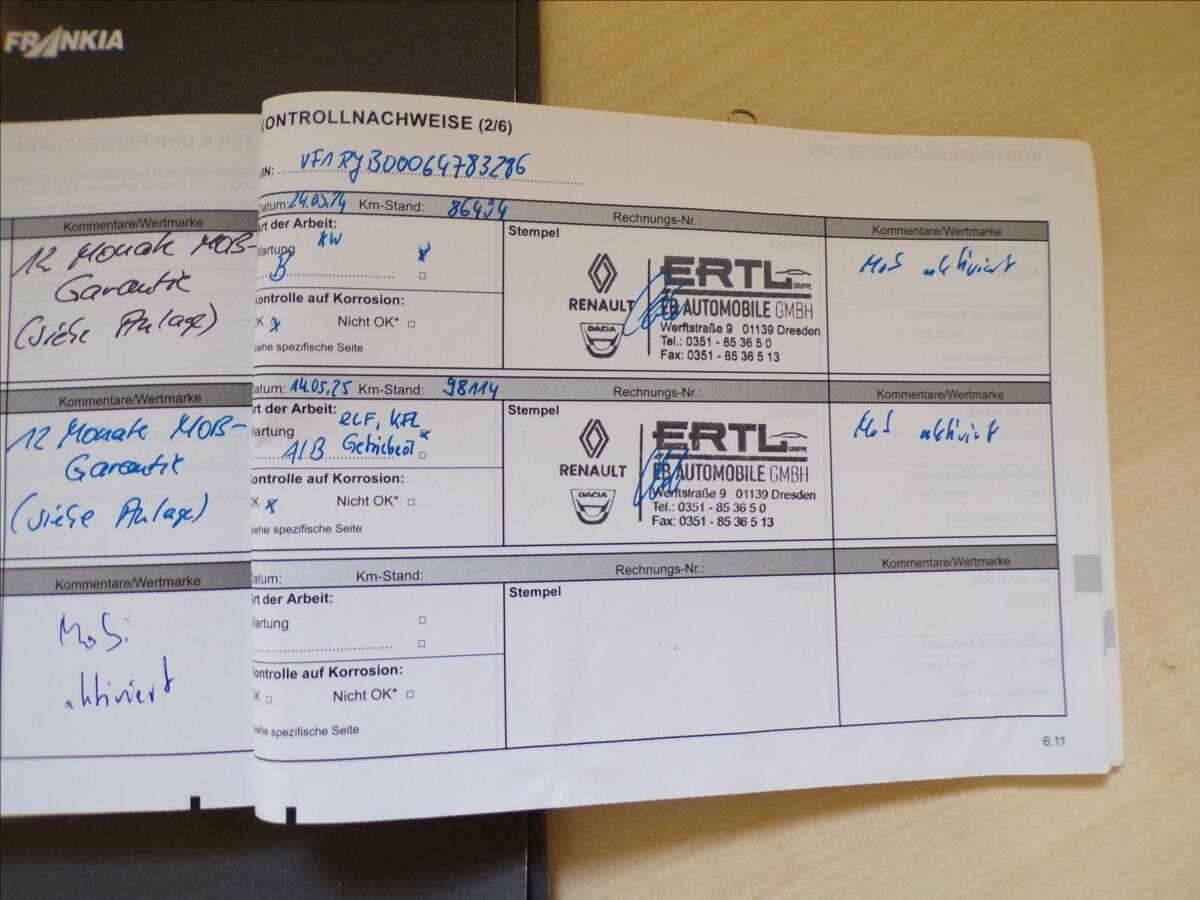 FRANKIA
Kommentare/Wertmarke
12 Monate MOB-
Garantie
(siehe Anlage)
Kommentare/Wertmarke
12 Monate MOB-
Garantie
(siehe Anlage)
Kommentare/Wertmarke
aktiviert
KONTROLLNACHWEISE (2/6)
VIN: VF1RYB00064783286
Datum: 24.05.24 Km-Stand: 86494 Rechnungs-Nr.: Kommentare/Wertmarke
Art der Arbeit:
Wartung
B
Kontrolle auf Korrosion:
OK x Nicht OK* □
siehe spezifische Seite
Stempel
RENAULT
DACIA
ERTL
GRUPPE
EB AUTOMOBILE GMBH
Werftstraße 9 01139 Dresden
Tel.: 0351 - 85 36 5 0
Fax: 0351 - 85 36 5 13
MoS aktiviert
Datum: 14.05.25 Km-Stand: 98114 Rechnungs-Nr.: Kommentare/Wertmarke
Art der Arbeit:
Wartung
A/B Getriebeöl
Kontrolle auf Korrosion:
OK x Nicht OK* □
siehe spezifische Seite
Stempel
RENAULT
DACIA
ERTL
GRUPPE
EB AUTOMOBILE GMBH
Werftstraße 9 01139 Dresden
Tel.: 0351 - 85 36 5 0
Fax: 0351 - 85 36 5 13
MoS aktiviert
Datum: Km-Stand: Rechnungs-Nr.: Kommentare/Wertmarke
Art der Arbeit:
Wartung □
□
Kontrolle auf Korrosion:
OK □ Nicht OK* □
siehe spezifische Seite
Stempel
6.11